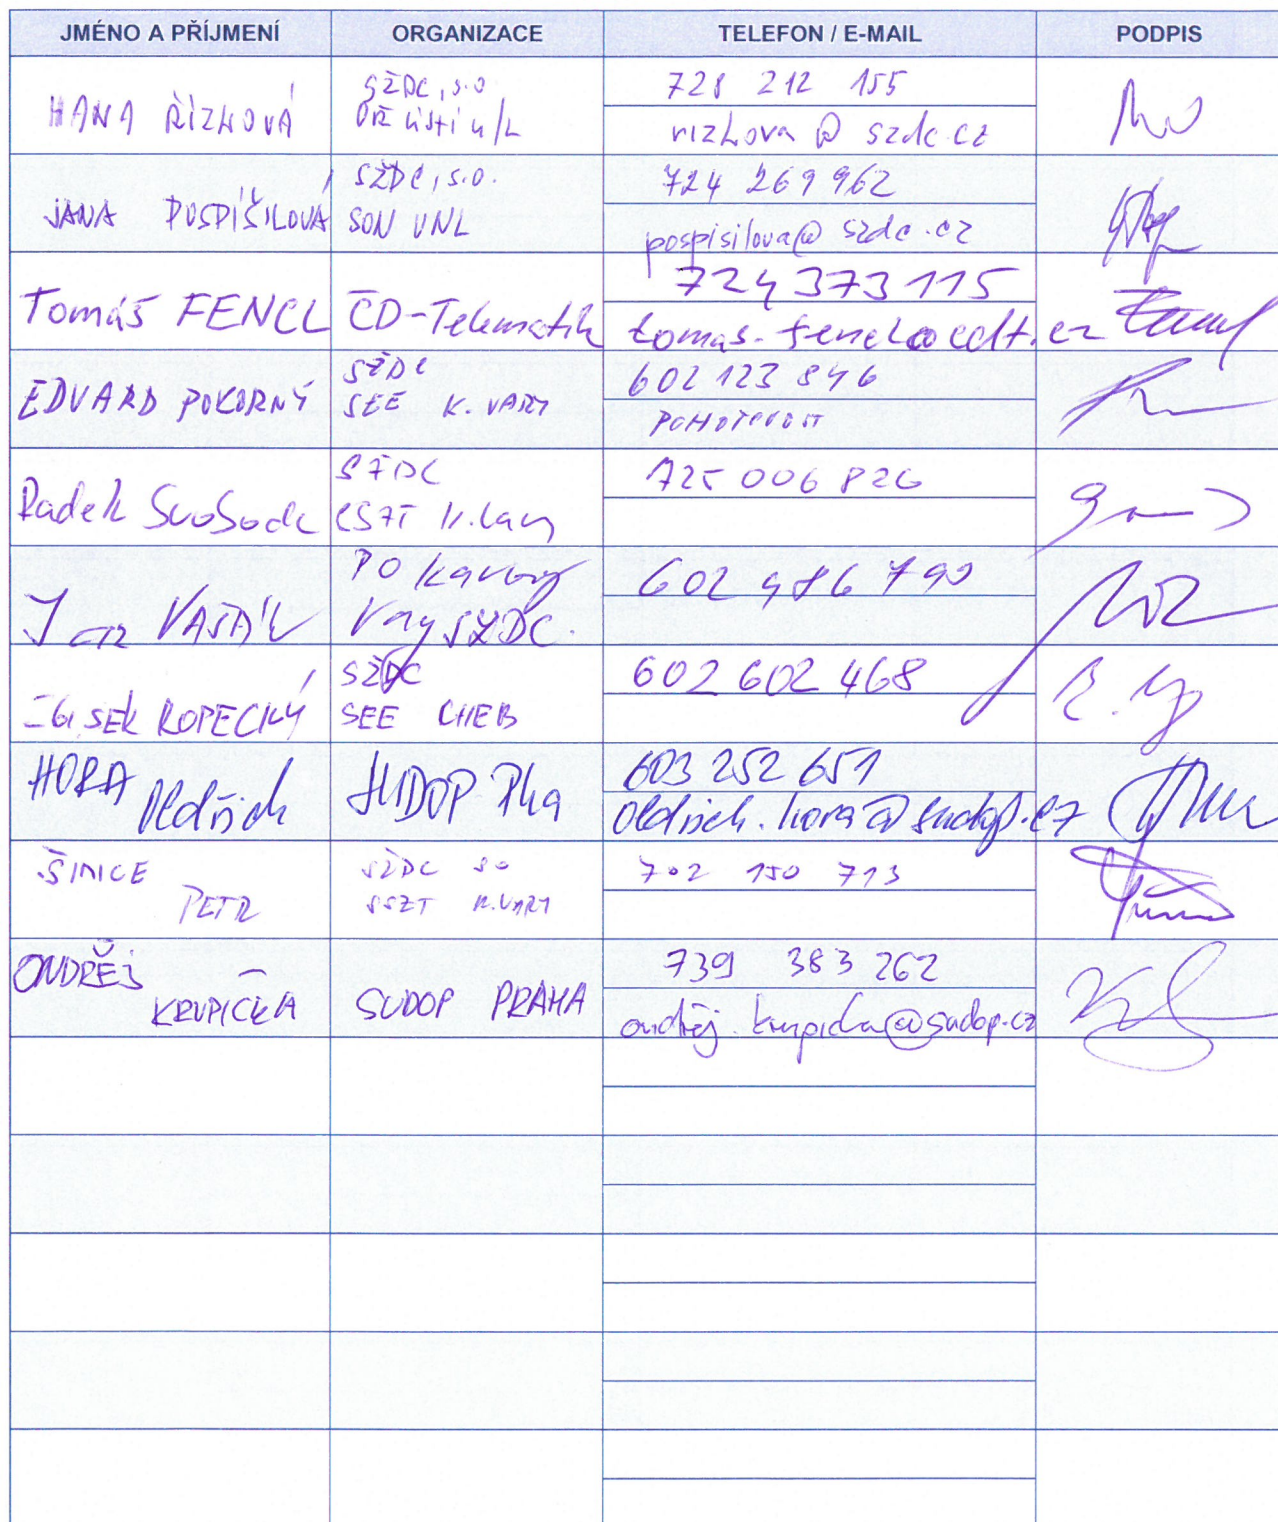 JMÉNO A PŘÍJMENÍ ORGANIZACE TELEFON / E-MAIL PODPIS
HANA ŘÍZKOVÁ
SŽDC, s.o
OŘ Ústí n/L
728 212 155
rizkova@szdc.cz
JANA POSPÍŠILOVÁ
SŽDC, s.o.
SON UNL
724 269 962
pospisilova@szdc.cz
Tomáš FENCL
ČD-Telematik
724 373 115
tomas.fencl@cdt.cz
EDVARD POKORNÝ
SŽDC
SEE K. VARY
602 123 846
POHOTOVOST
Radek Svoboda
SŽDC
725 006 826
VAŠÁK
PO Karlovy
Vary SŽDC.
KOPECKÝ
SŽDC
SEE CHEB
602 602 468
HORA
Oldřich
SUDOP Pha
603 252 651
oldrich.hora@sudop.cz
PETR
SŽDC SO
SSZT K.VARY
702 150 713
ONDŘEJ
KRUPIČKA
SUDOP PRAHA
739 383 262
ondrej.krupicka@sudop.cz